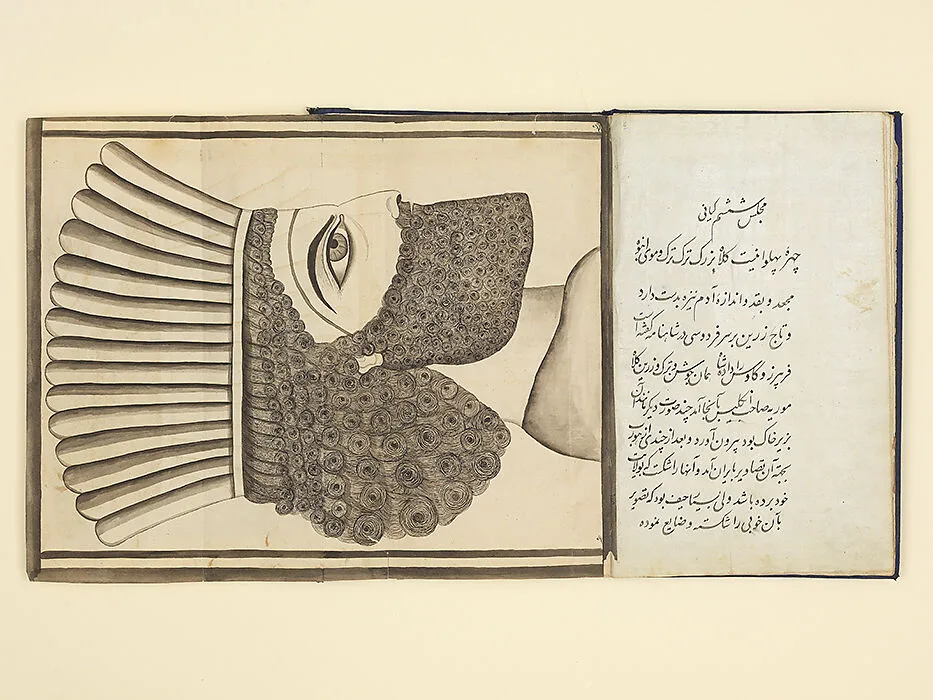 مجلس ششم کیانی
چهرهٔ پهلوانیست کلاه بزرگ ترک ترک و موی انبوه
مجعد و بقد و اندازهٔ آدم نیزه بدست دارد
و تاج زرین بر سر فردوسی در شاهنامه گفته است
فریبرز و کاوس را داد شاه همان جوشن و ترک و زرین کلاه
موریه صاحب انگلیس آنجا آمد چند صورت دیگر که
بزیر خاک بود بیرون آورد و بعد از چندی
بجهة آن تصاویر بایران آمد و آنها را شکست که بولایت
خود برده باشد ولی بسیار حیف بود که تصویر
بآن خوبی را شکسته و ضایع نموده